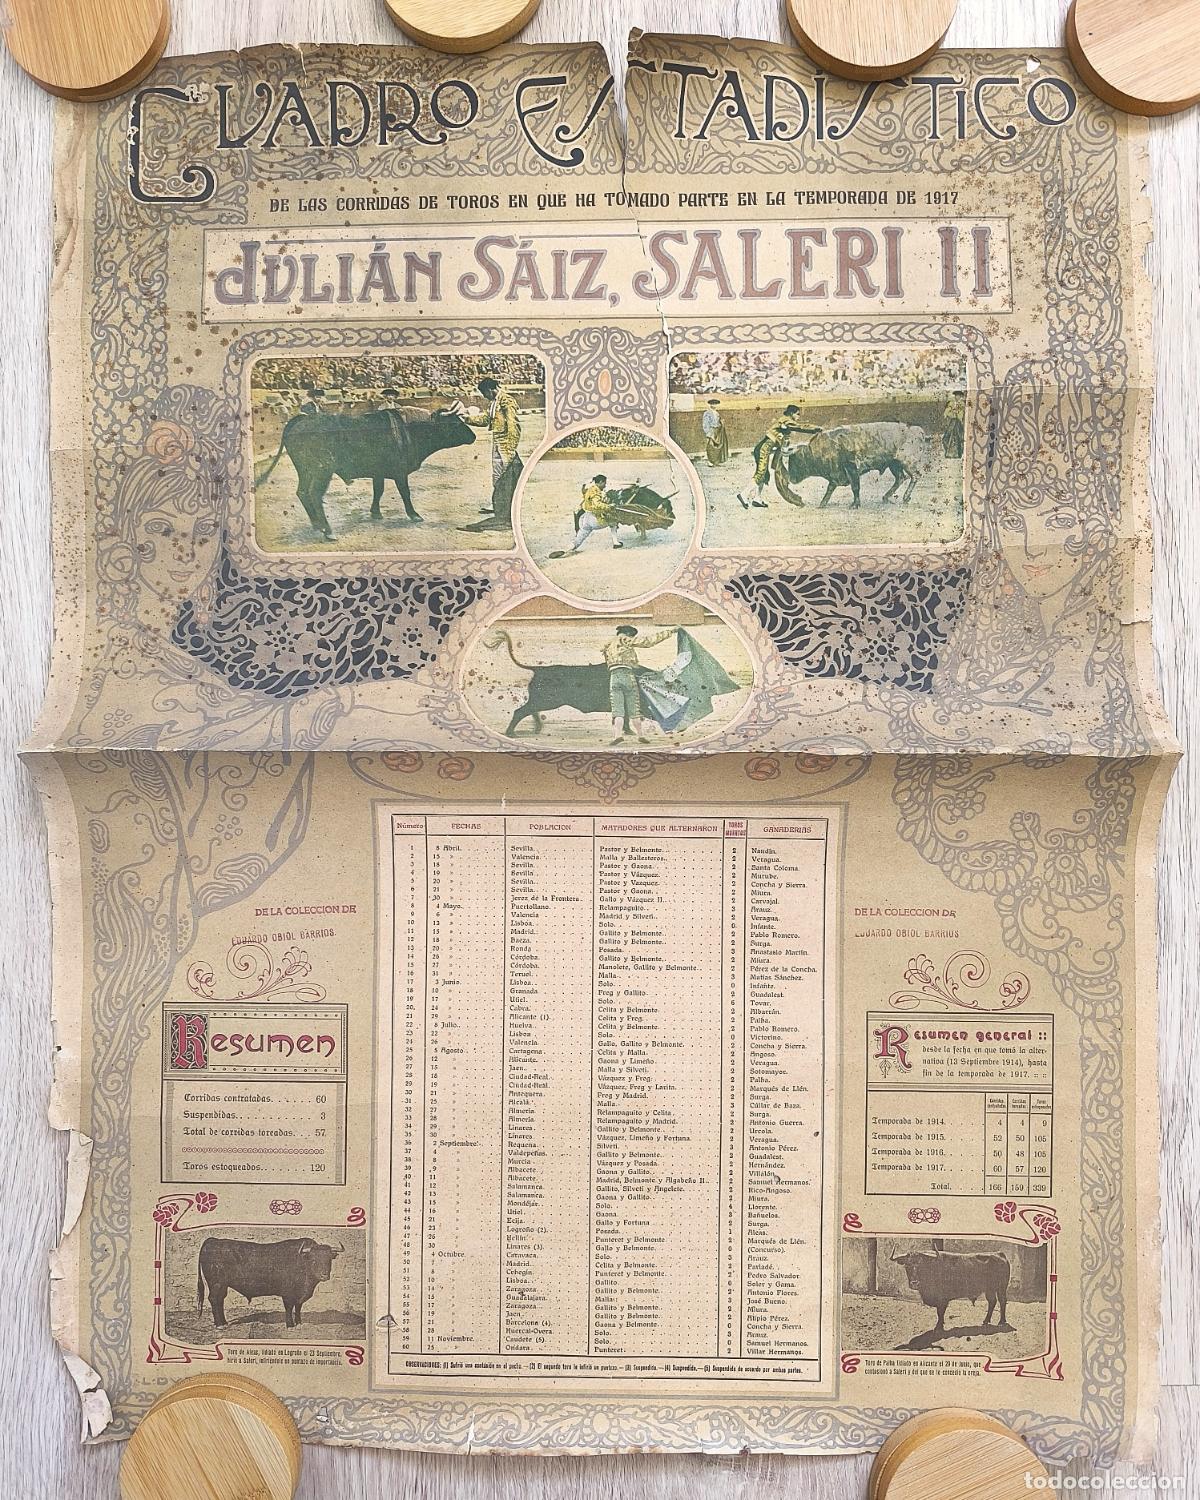 CUADRO ESTADÍSTICO
DE LAS CORRIDAS DE TOROS EN QUE HA TOMADO PARTE EN LA TEMPORADA DE 1917
JULIÁN SÁIZ, SALERI II
Número FECHAS POBLACION MATADORES QUE ALTERNARON TOROS MUERTOS GANADERIAS
1 8 Abril. Sevilla. Pastor y Belmonte. 2 Nandín.
2 15 » Valencia Malla y Ballesteros. 2 Veragua.
3 18 » Sevilla. Pastor y Gaona. 2 Santa Coloma.
4 19 » Sevilla. Pastor y Vázquez. 2 Murube.
5 20 » Sevilla. Pastor y Vazquez. 2 Concha y Sierra.
6 21 » Sevilla. Pastor y Gaona. 2 Miura.
7 30 » Jerez de la Frontera. Gallo y Vázquez II. 2 Carvajal.
8 4 Mayo. Puertollano. Relampaguito. 3 Arauz.
9 6 » Valencia Madrid y Silveti. 2 Veragua.
10 13 » Lisboa Solo. 0 Infante.
11 15 » Madrid. Gallito y Belmonte. 2 Pablo Romero.
12 18 » Baeza. Gallito y Belmonte. 2 Surga.
13 20 » Ronda Posada. 3 Anastasio Martín.
14 26 » Córdoba. Gallito y Belmonte. 2 Miura.
15 27 » Córdoba. Manolete, Gallito y Belmonte. 2 Pérez de la Concha.
16 31 » Teruel. Malla. 3 Matías Sánchez.
17 3 Junio. Lisboa. Solo. 0 Infante.
18 10 » Granada Freg y Gallito. 2 Guadalest.
19 17 » Utiel. Solo. 6 Tovar.
20 24 » Cabra. Celita y Belmonte. 2 Albarrán.
21 29 » Alicante (1). Celita y Freg. 2 Palha.
22 8 Julio. Huelva. Celita y Belmonte. 2 Pablo Romero.
23 22 » Lisboa Solo. 0 Victorino.
24 26 » Valencia. Gallo, Gallito y Belmonte. 2 Concha y Sierra.
25 5 Agosto. Cartagena. Celita y Malla. 2 Angoso.
26 12 » Alicante. Gaona y Limeño. 2 Veragua.
27 15 » Jaen. Malla y Silveti. 2 Sotomayor.
28 18 » Ciudad-Real. Vázquez y Freg. 2 Palha.
29 19 » Ciudad-Real. Vázquez, Freg y Larita. 2 Marqués de Llén.
30 21 » Antequera. Freg y Madrid. 2 Surga.
31 25 » Alcalá. Malla. 3 Cúllar de Baza.
32 27 » Almería. Relampaguito y Celita. 2 Surga.
33 28 » Almería. Relampaguito y Madrid. 2 Antonio Guerra.
34 29 » Linares. Gallito y Belmonte. 2 Urcola.
35 30 » Linares Vázquez, Limeño y Fortuna. 2 Veragua.
36 2 Septiembre. Requena. Silveti. 3 Antonio Pérez.
37 4 » Valdepeñas. Gallito y Belmonte. 2 Guadalest.
38 8 » Murcia Vázquez y Posada. 2 Hernández.
39 9 » Albacete. Gaona y Gallito. 2 Villalón.
40 11 » Albacete. Madrid, Belmonte y Algabeño II. 2 Samuel Hermanos.
41 12 » Salamanca. Gallito, Silveti y Angelete. 2 Rico-Angoso.
42 13 » Salamanca. Gaona y Gallito. 2 Miura.
43 15 » Mondéjar. Solo. 4 Llorente.
44 16 » Utiel. Gaona. 3 Bañuelos.
45 21 » Ecija. Gallo y Fortuna 2 Surga.
46 23 » Logroño (2). Posada. 1 Aleas.
47 26 » Hellin. Punteret y Belmonte. 2 Marqués de Llén.
48 30 » Linares (3). Gallo y Belmonte. 0 (Concurso).
49 4 Octubre. Caravaca. Solo. 3 Arauz.
50 7 » Madrid. Celita y Belmonte. 2 Parladé.
51 8 » Cehegín Punteret y Belmonte. 2 Pedro Salvador.
52 10 » Lisboa. Gallito 0 Soler y Gama.
53 14 » Zaragoza. Gallito y Belmonte. 2 Antonio Flores.
54 15 » Guadalajara. Malla. 3 José Bueno.
55 17 » Zaragoza. Gallito y Belmonte. 2 Miura.
56 19 » Jaen. Gallito y Belmonte. 2 Alipio Pérez.
57 21 » Barcelona (4). Gaona y Belmonte. 0 Concha y Sierra.
58 28 » Huercal-Overa. Solo. 3 Arauz.
59 11 Noviembre. Caudete (5). Solo. 0 Samuel Hermanos.
60 25 » Ondara. Punteret. 2 Villar Hermanos.
OBSERVACIONES: (1) Sufrió una contusión en el pecho.—(2) El segundo toro le infirió un puntazo.—(3) Suspendida.—(4) Suspendida.—(5) Suspendida de acuerdo por ambas partes.
DE LA COLECCION DE
EDUARDO OBIOL BARRIOS.
Resumen
Corridas contratadas. 60
Suspendidas. 3
Total de corridas toreadas. 57
Toros estoqueados. 120
Toro de Aleas, lidiado en Logroño el 23 Septiembre,
hirió a Saleri, infiriéndole un puntazo de importancia.
DE LA COLECCION DE
EDUARDO OBIOL BARRIOS
Resumen general ::
desde la fecha en que tomó la alter-
nativa (13 Septiembre 1914), hasta
fin de la temporada de 1917. :: ::
Corridas contratadas Corridas toreadas Toros estoqueados
Temporada de 1914. 4 4 9
Temporada de 1915. 52 50 105
Temporada de 1916. 50 48 105
Temporada de 1917. 60 57 120
Total. 166 159 339
Toro de Palha lidiado en Alicante el 29 de Junio, que
contusionó a Saleri y del que se le concedió la oreja.
todocoleccion